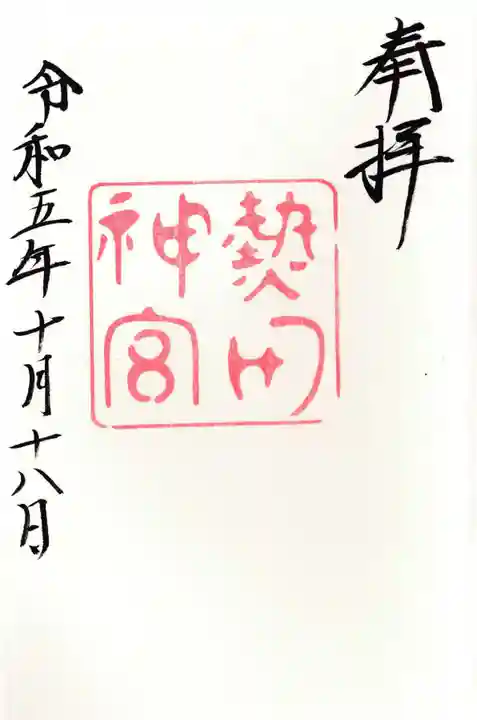 奉拝
熱田
神宮
令和五年十月十八日